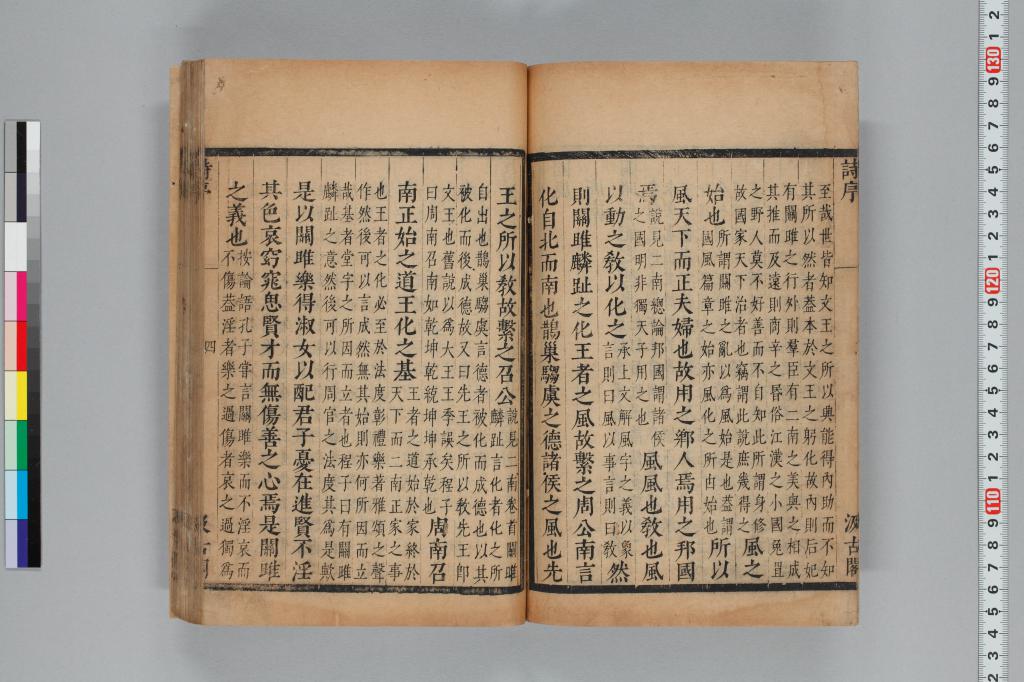 詩序
汲古閣
至哉世皆知文王之所以興能得內助而不知
其所以然者蓋本於文王之躬化故內則后妃
有關雎之行外則羣臣有二南之美與之相成
其推而及遠則商辛之昏俗江漢之小國兔罝
之野人莫不好善而不自知此所謂身修
故國家天下治者也竊謂此說庶幾得之
風之
始也
所謂關雎之亂以為風始是也蓋謂
國風篇章之始亦風化之所由始也
所以
風天下而正夫婦也故用之鄉人焉用之邦國
焉
說見二南總論邦國謂諸侯
之國明非獨天子用之也
風風也敎也風
以動之敎以化之
承上文解風字之義以象
言則曰風以事言則曰敎
然
則關雎麟趾之化王者之風故繫之周公南言
化自北而南也鵲巢騶虞之德諸侯之風也先
王之所以敎故繫之召公
說見二南卷首關雎
麟趾言化者化之所
自出也鵲巢騶虞言德者被化而成德也以其
被化而後成德故又曰先王之所以敎先王卽
文王也舊說以為大王王季誤矣程子
曰周南召南如乾坤乾統坤坤承乾也
周南召
南正始之道王化之基
王者之道始於家終於
天下而二南正家之事
也王者之化必至於法度彰禮樂著雅頌之聲
作然後可以言成然無其始則亦何所因而立
哉基者堂宇之所因而立者也程子曰有關雎
麟趾之意然後可以行周官之法度其為是歟
是以關雎樂得淑女以配君子憂在進賢不淫
其色哀窈窕思賢才而無傷善之心焉是關雎
之義也
按論語孔子嘗言關雎樂而不淫哀而
不傷蓋淫者樂之過傷者哀之過獨為
詩序
四
汲古閣